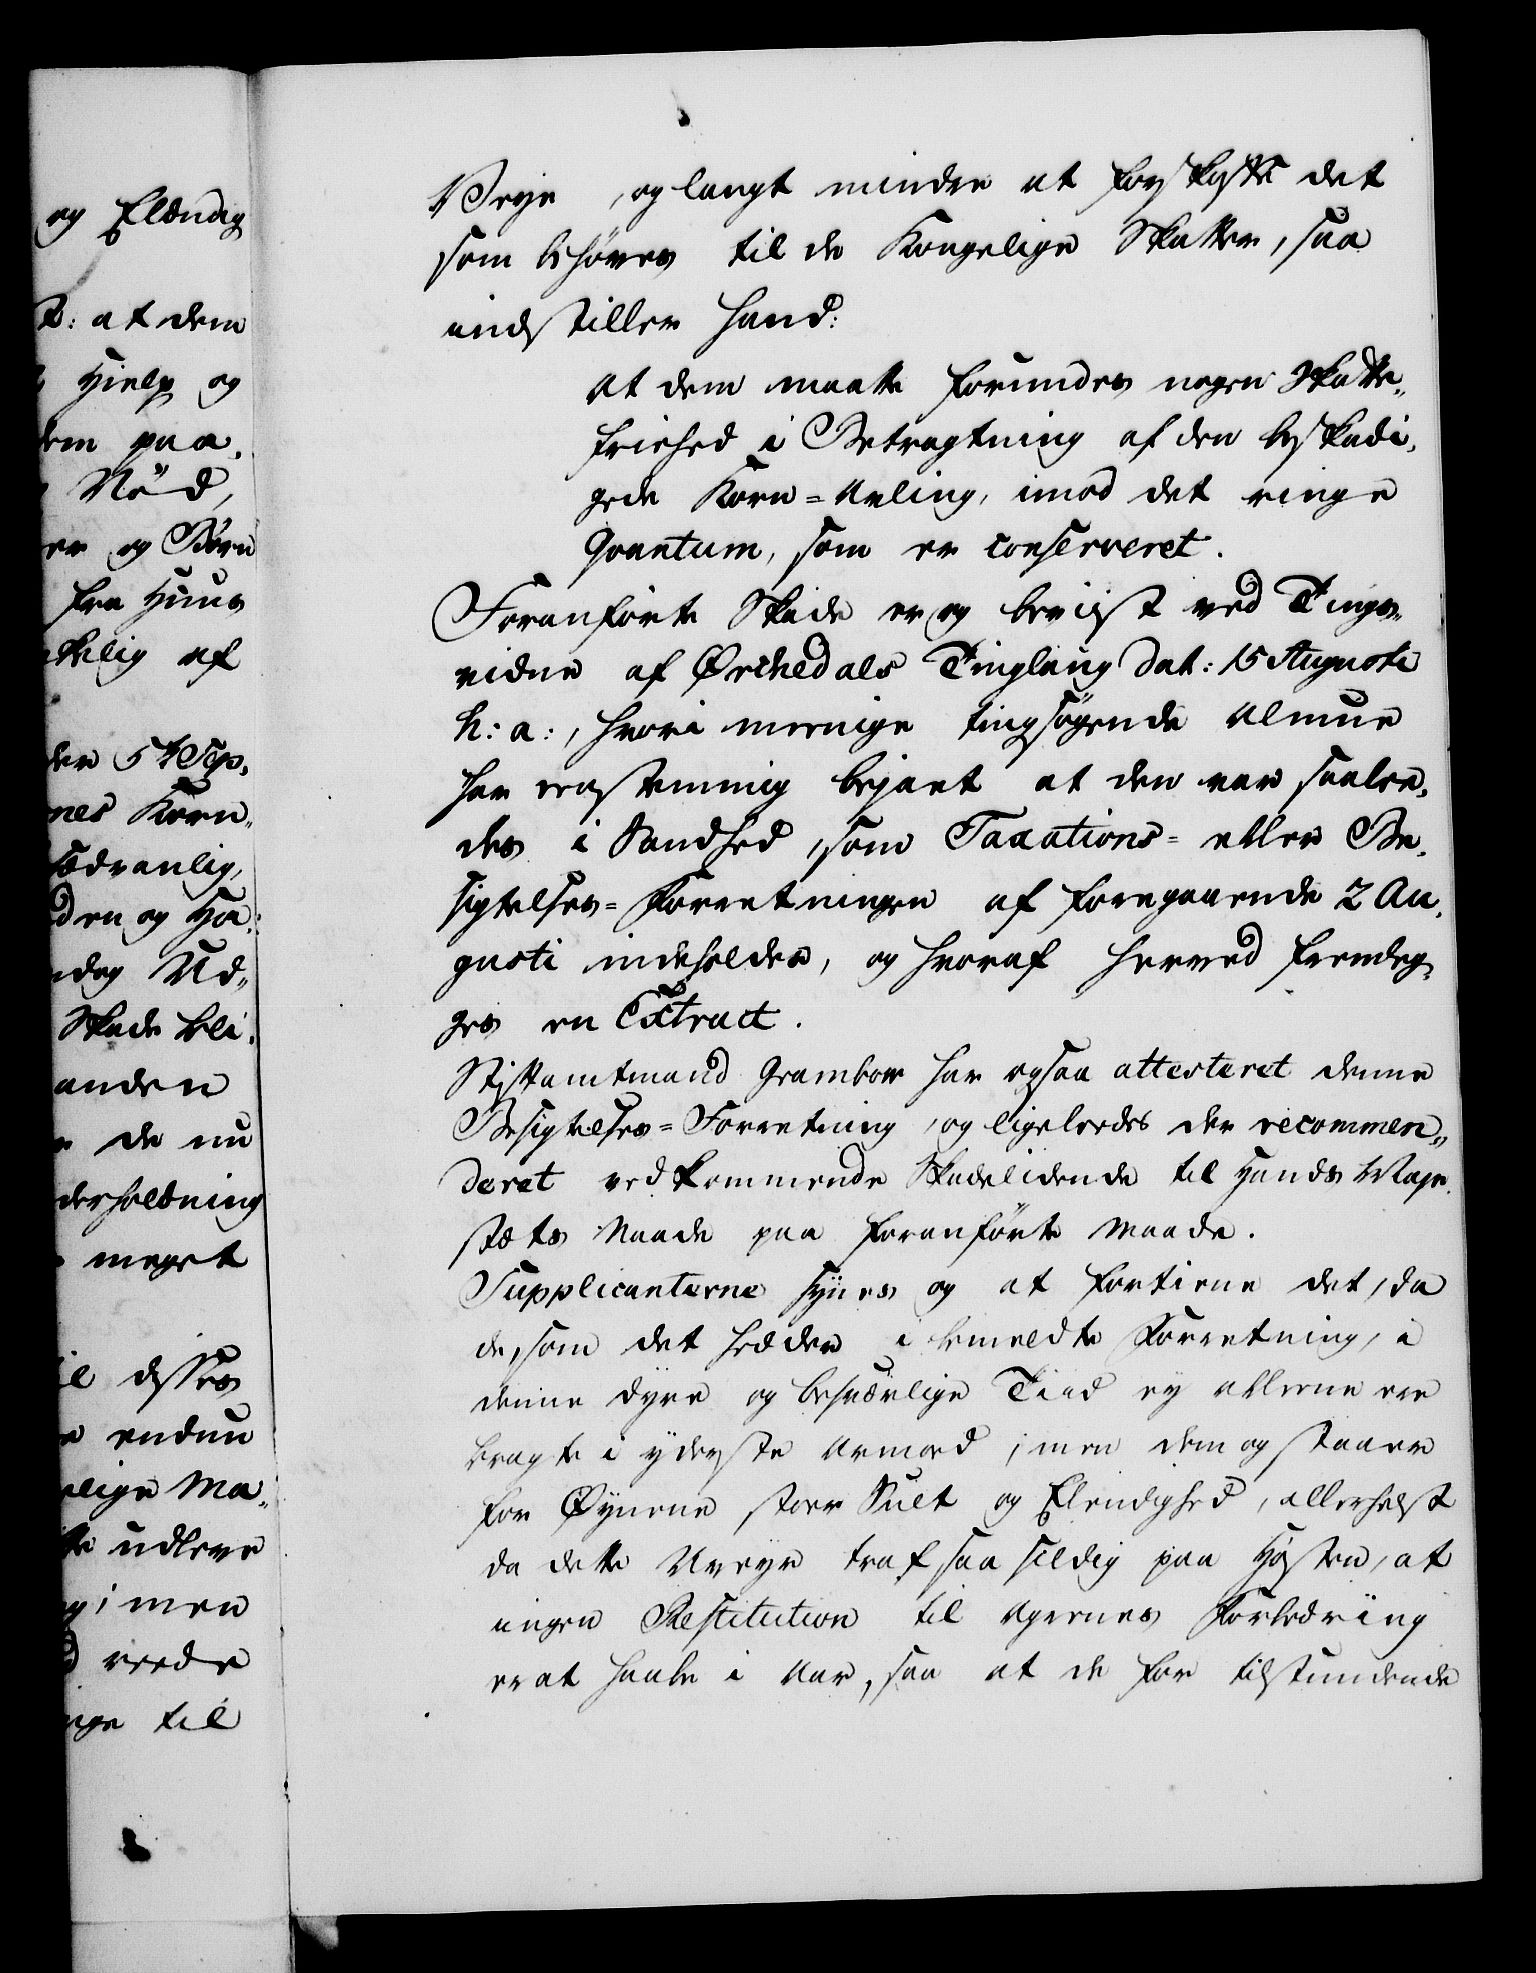 og Elændig
t: at dem
Hielp og
dem paa,
Nöd,
er og Börn
fra Huus
kelig af
den 5te Sep,
nes Korn,,
sædvanlig,
den og Ha:
dag Ud,,
Skade bli,
anden
de nu
derholdning
meget
il disses
endnu
elige Ma,
te udleve
g; men
reede
ige til
Veye, og langt mindre at forskaffe det
som behöves til de Kongelige Skatter, saa
indstiller hand:
at dem maatte forundes nogen Skatte,,
friehed i Betragtning af den beskadi,
gede Korn=Avling, imod det ringe
Qvantum, som er conserveret.
Foranförte Skade er og beviist ved Tings,,
vidne af Ørchedals Tinglaug dat: 15 Augusti
h: a:, hvori meenige tingsögende Almue
har eenstemmig bejaet at den var saalee,
des i Sandhed, som Taxations= eller Be,
sigtelses=Forretningen af foregaaende 2 Au,
gusti indeholder, og hvoraf herved fremleg,
ges en Extract.
Stiftamtmand Grambow har ogsaa attesteret denne
Besigtelses=Forretning, og ligeleedes der recommen,,
deret vedkommende Skadelidende til Hands Maje,
stæts Naade paa foranförte Maade.
Supplicanterne synes og at fortiene det, da
de, som det hedder i bemeldte Forretning, i
denne dyre og besværlige Tiid ey alleene ere
bragte i yderste Armod; men dem og staaer
for Øynene stoer Sult og Elendighed, allerhelst
da dette Uveyr traf saa sildig paa Hösten, at
ingen Restitution til Agernes Forbedring
er at haabe i Aar, saa at de for tilstundende